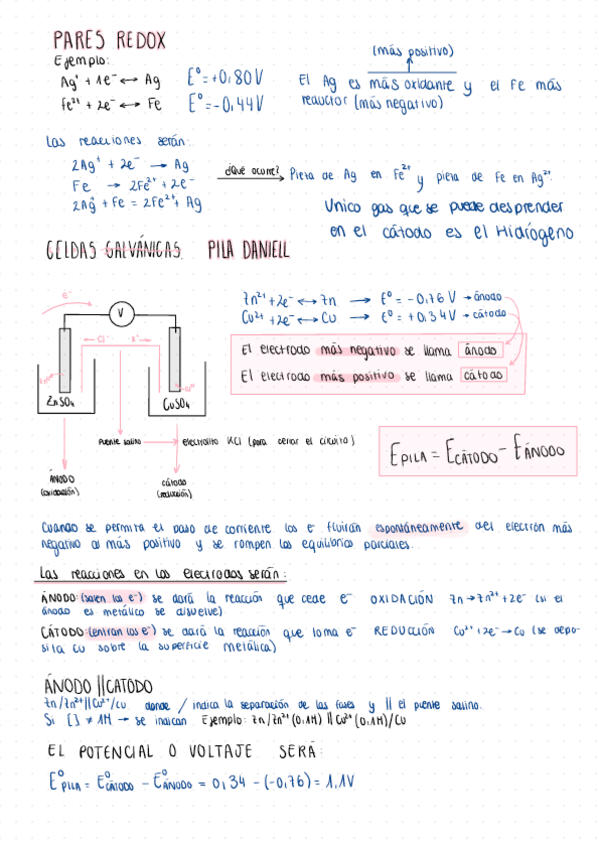 PARES REDOX
Ejemplo:
Ag⁺ + 1e⁻ ↔ Ag E° = +0,80 V
Fe²⁺ + 2e⁻ ↔ Fe E° = -0,44 V
(más positivo)
El Ag es más oxidante y el Fe más
reductor (más negativo)
Las reacciones serán:
2Ag⁺ + 2e⁻ → Ag
Fe → 2Fe²⁺ + 2e⁻
2Ag⁺ + Fe = 2Fe²⁺ + Ag
¿Qué ocurre? Pieza de Ag en Fe²⁺ y pieza de Fe en Ag²⁺.
Unico gas que se puede desprender
en el cátodo es el Hidrógeno
CELDAS GALVÁNICAS. PILA DANIELL
e⁻
V
Cl⁻ K⁺
ZnSO₄
CuSO₄
Zn²⁺ + 2e⁻ ↔ Zn → E° = -0,76 V → ánodo
Cu²⁺ + 2e⁻ ↔ Cu → E° = +0,34 V → cátodo
El electrodo más negativo se llama ánodo
El electrodo más positivo se llama cátodo
puente salino → electrolito KCl (para cerrar el circuito)
E PILA = E CÁTODO - E ÁNODO
ÁNODO
(oxidación)
cátodo
(reducción)
Cuando se permita el paso de corriente los e⁻ fluirán espontáneamente del electrón más
negativo al más positivo y se rompen los equilibrios parciales.
Las reacciones en los electrodos serán:
ÁNODO: (salen los e⁻) se dará la reacción que cede e⁻ OXIDACIÓN Zn → Zn²⁺ + 2e⁻ (si el
ánodo es metálico se disuelve)
CÁTODO: (entran los e⁻) se dará la reacción que toma e⁻ REDUCCIÓN Cu²⁺ + 2e⁻ → Cu (se depo-
sita Cu sobre la superficie metálica)
ÁNODO || CATODO
Zn/Zn²⁺ || Cu²⁺/Cu donde / indica la separación de las fases y || el puente salino.
Si [ ] ≠ 1M → se indican Ejemplo: Zn/Zn²⁺ (0,1M) || Cu²⁺ (0,1M)/Cu
EL POTENCIAL O VOLTAJE SERÁ:
E° PILA = E° CÁTODO - E° ÁNODO = 0,34 - (-0,76) = 1,1V